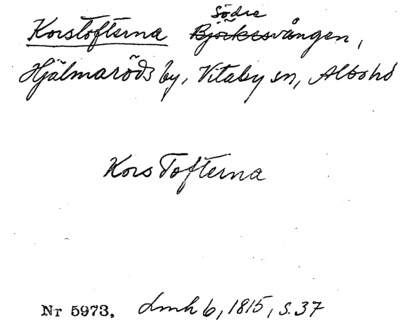 Södre
Korstofterna Björkesvången,
Hjälmaröds by, Vitaby sn, Albo hd
Kors Tofterna
Nr 5973, Lmh 6, 1815, s. 37